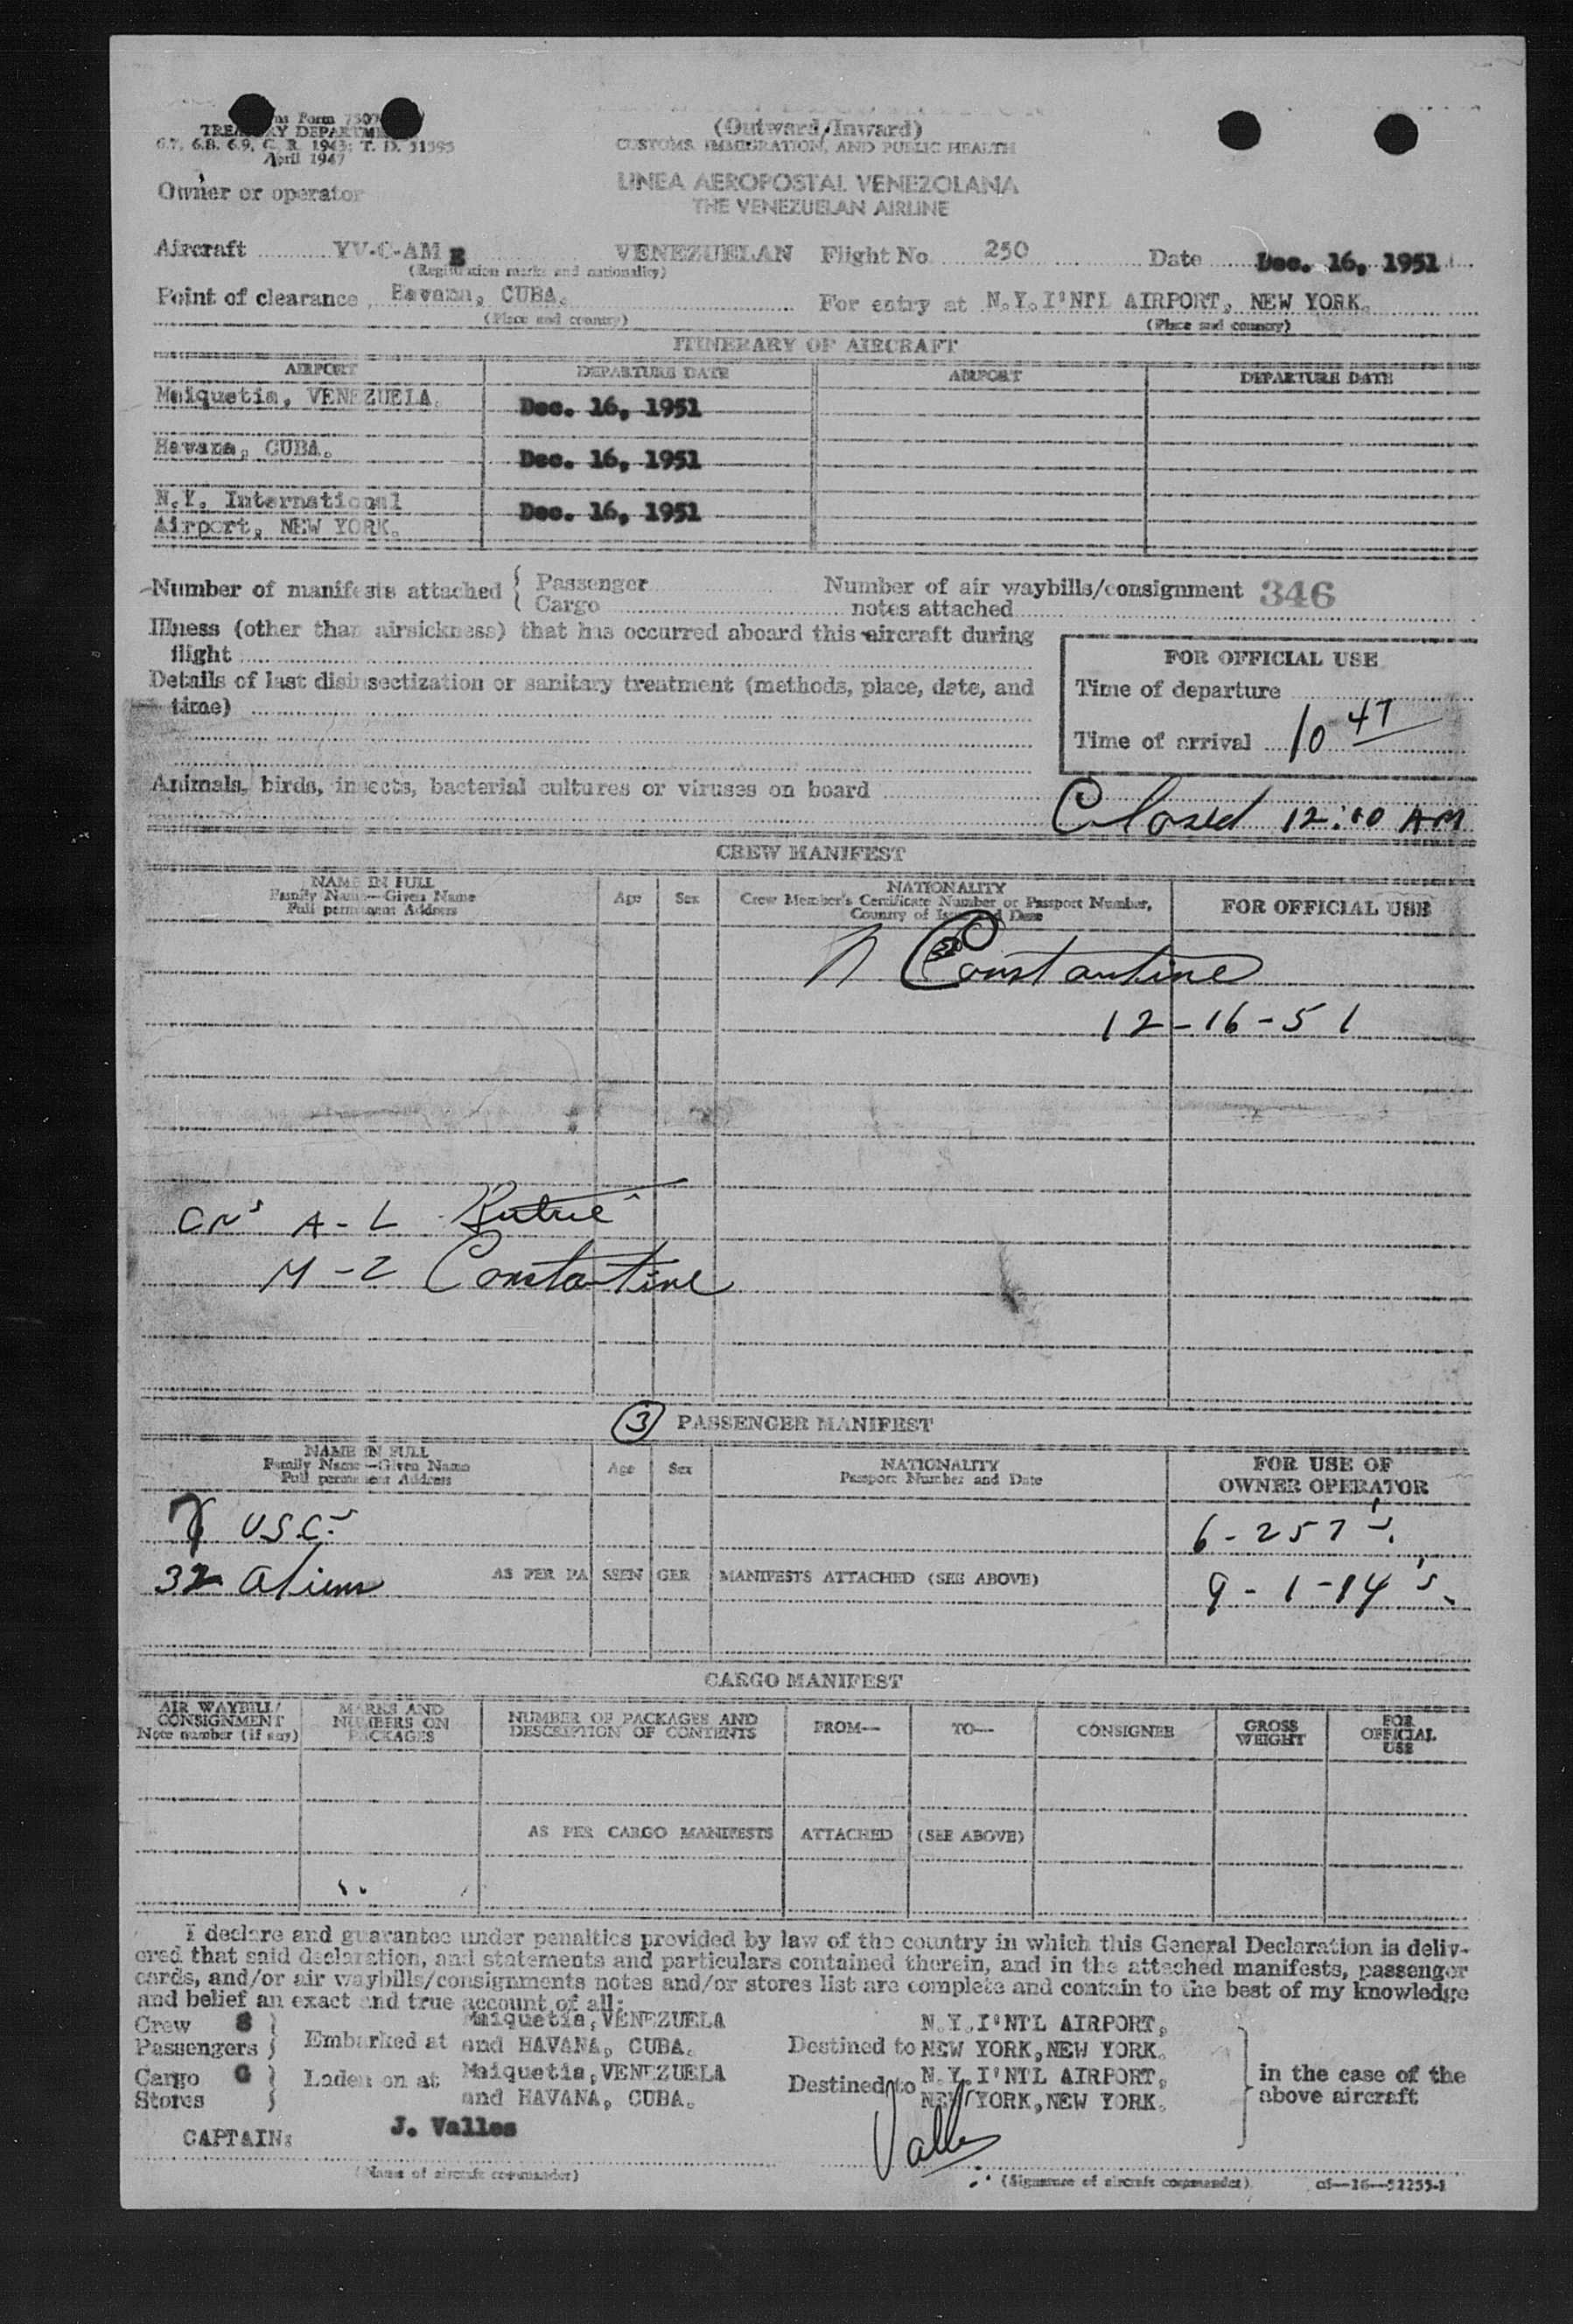 Form 7507
TREASURY DEPARTMENT
6.7, 6.8, 6.9, C. R. 1943; T. D. 51595
April 1947
(Outward/Inward)
CUSTOMS, IMMIGRATION, AND PUBLIC HEALTH
Owner or operator
LINEA AEROPOSTAL VENEZOLANA
THE VENEZUELAN AIRLINE
Aircraft YV-C-AM E VENEZUELAN Flight No. 250 Date Dec. 16, 1951
(Registration marks and nationality)
Point of clearance Havana, CUBA. For entry at N.Y.I'NTL AIRPORT, NEW YORK.
(Place and country) (Place and country)
ITINERARY OF AIRCRAFT
AIRPORT DEPARTURE DATE AIRPORT DEPARTURE DATE
Maiquetia, VENEZUELA. Dec. 16, 1951
Havana, CUBA. Dec. 16, 1951
N.Y. International
Airport, NEW YORK. Dec. 16, 1951
Number of manifests attached { Passenger
Cargo
Number of air waybills/consignment 346
notes attached
Illness (other than airsickness) that has occurred aboard this aircraft during
flight
Details of last disinsectization or sanitary treatment (methods, place, date, and
time)
FOR OFFICIAL USE
Time of departure
Time of arrival 10 47
Animals, birds, insects, bacterial cultures or viruses on board
Closed 12:00 AM
CREW MANIFEST
NAME IN FULL
Family Name—Given Name
Full permanent Address
Age Sex
NATIONALITY
Crew Member's Certificate Number or Passport Number,
Country of Issue and Date
FOR OFFICIAL USE
Constantine
12-16-51
A-L
M-Z Constantine
3 PASSENGER MANIFEST
NAME IN FULL
Family Name—Given Name
Full permanent Address
Age Sex
NATIONALITY
Passport Number and Date
FOR USE OF
OWNER OPERATOR
USC's 6-257's.
32 Aliens AS PER PASSENGER MANIFESTS ATTACHED (SEE ABOVE) 9-1-14's.
CARGO MANIFEST
AIR WAYBILL/
CONSIGNMENT
Note number (if any)
MARKS AND
NUMBERS ON
PACKAGES
NUMBER OF PACKAGES AND
DESCRIPTION OF CONTENTS
FROM— TO— CONSIGNEE
GROSS
WEIGHT
FOR
OFFICIAL
USE
AS PER CARGO MANIFESTS ATTACHED (SEE ABOVE)
I declare and guarantee under penalties provided by law of the country in which this General Declaration is deliv-
ered that said declaration, and statements and particulars contained therein, and in the attached manifests, passenger
cards, and/or air waybills/consignments notes and/or stores list are complete and contain to the best of my knowledge
and belief an exact and true account of all:
Crew 8
Passengers } Embarked at Maiquetia,VENEZUELA
and HAVANA, CUBA.
Destined to N.Y.I'NTL AIRPORT,
NEW YORK,NEW YORK.
Cargo G
Stores } Laden on at Maiquetia,VENEZUELA
and HAVANA, CUBA.
Destined to N.Y.I'NTL AIRPORT,
NEW YORK,NEW YORK.
in the case of the
above aircraft
CAPTAIN: J. Valles
Valles
(Name of aircraft commander) (Signature of aircraft commander) c6—16—52255-1